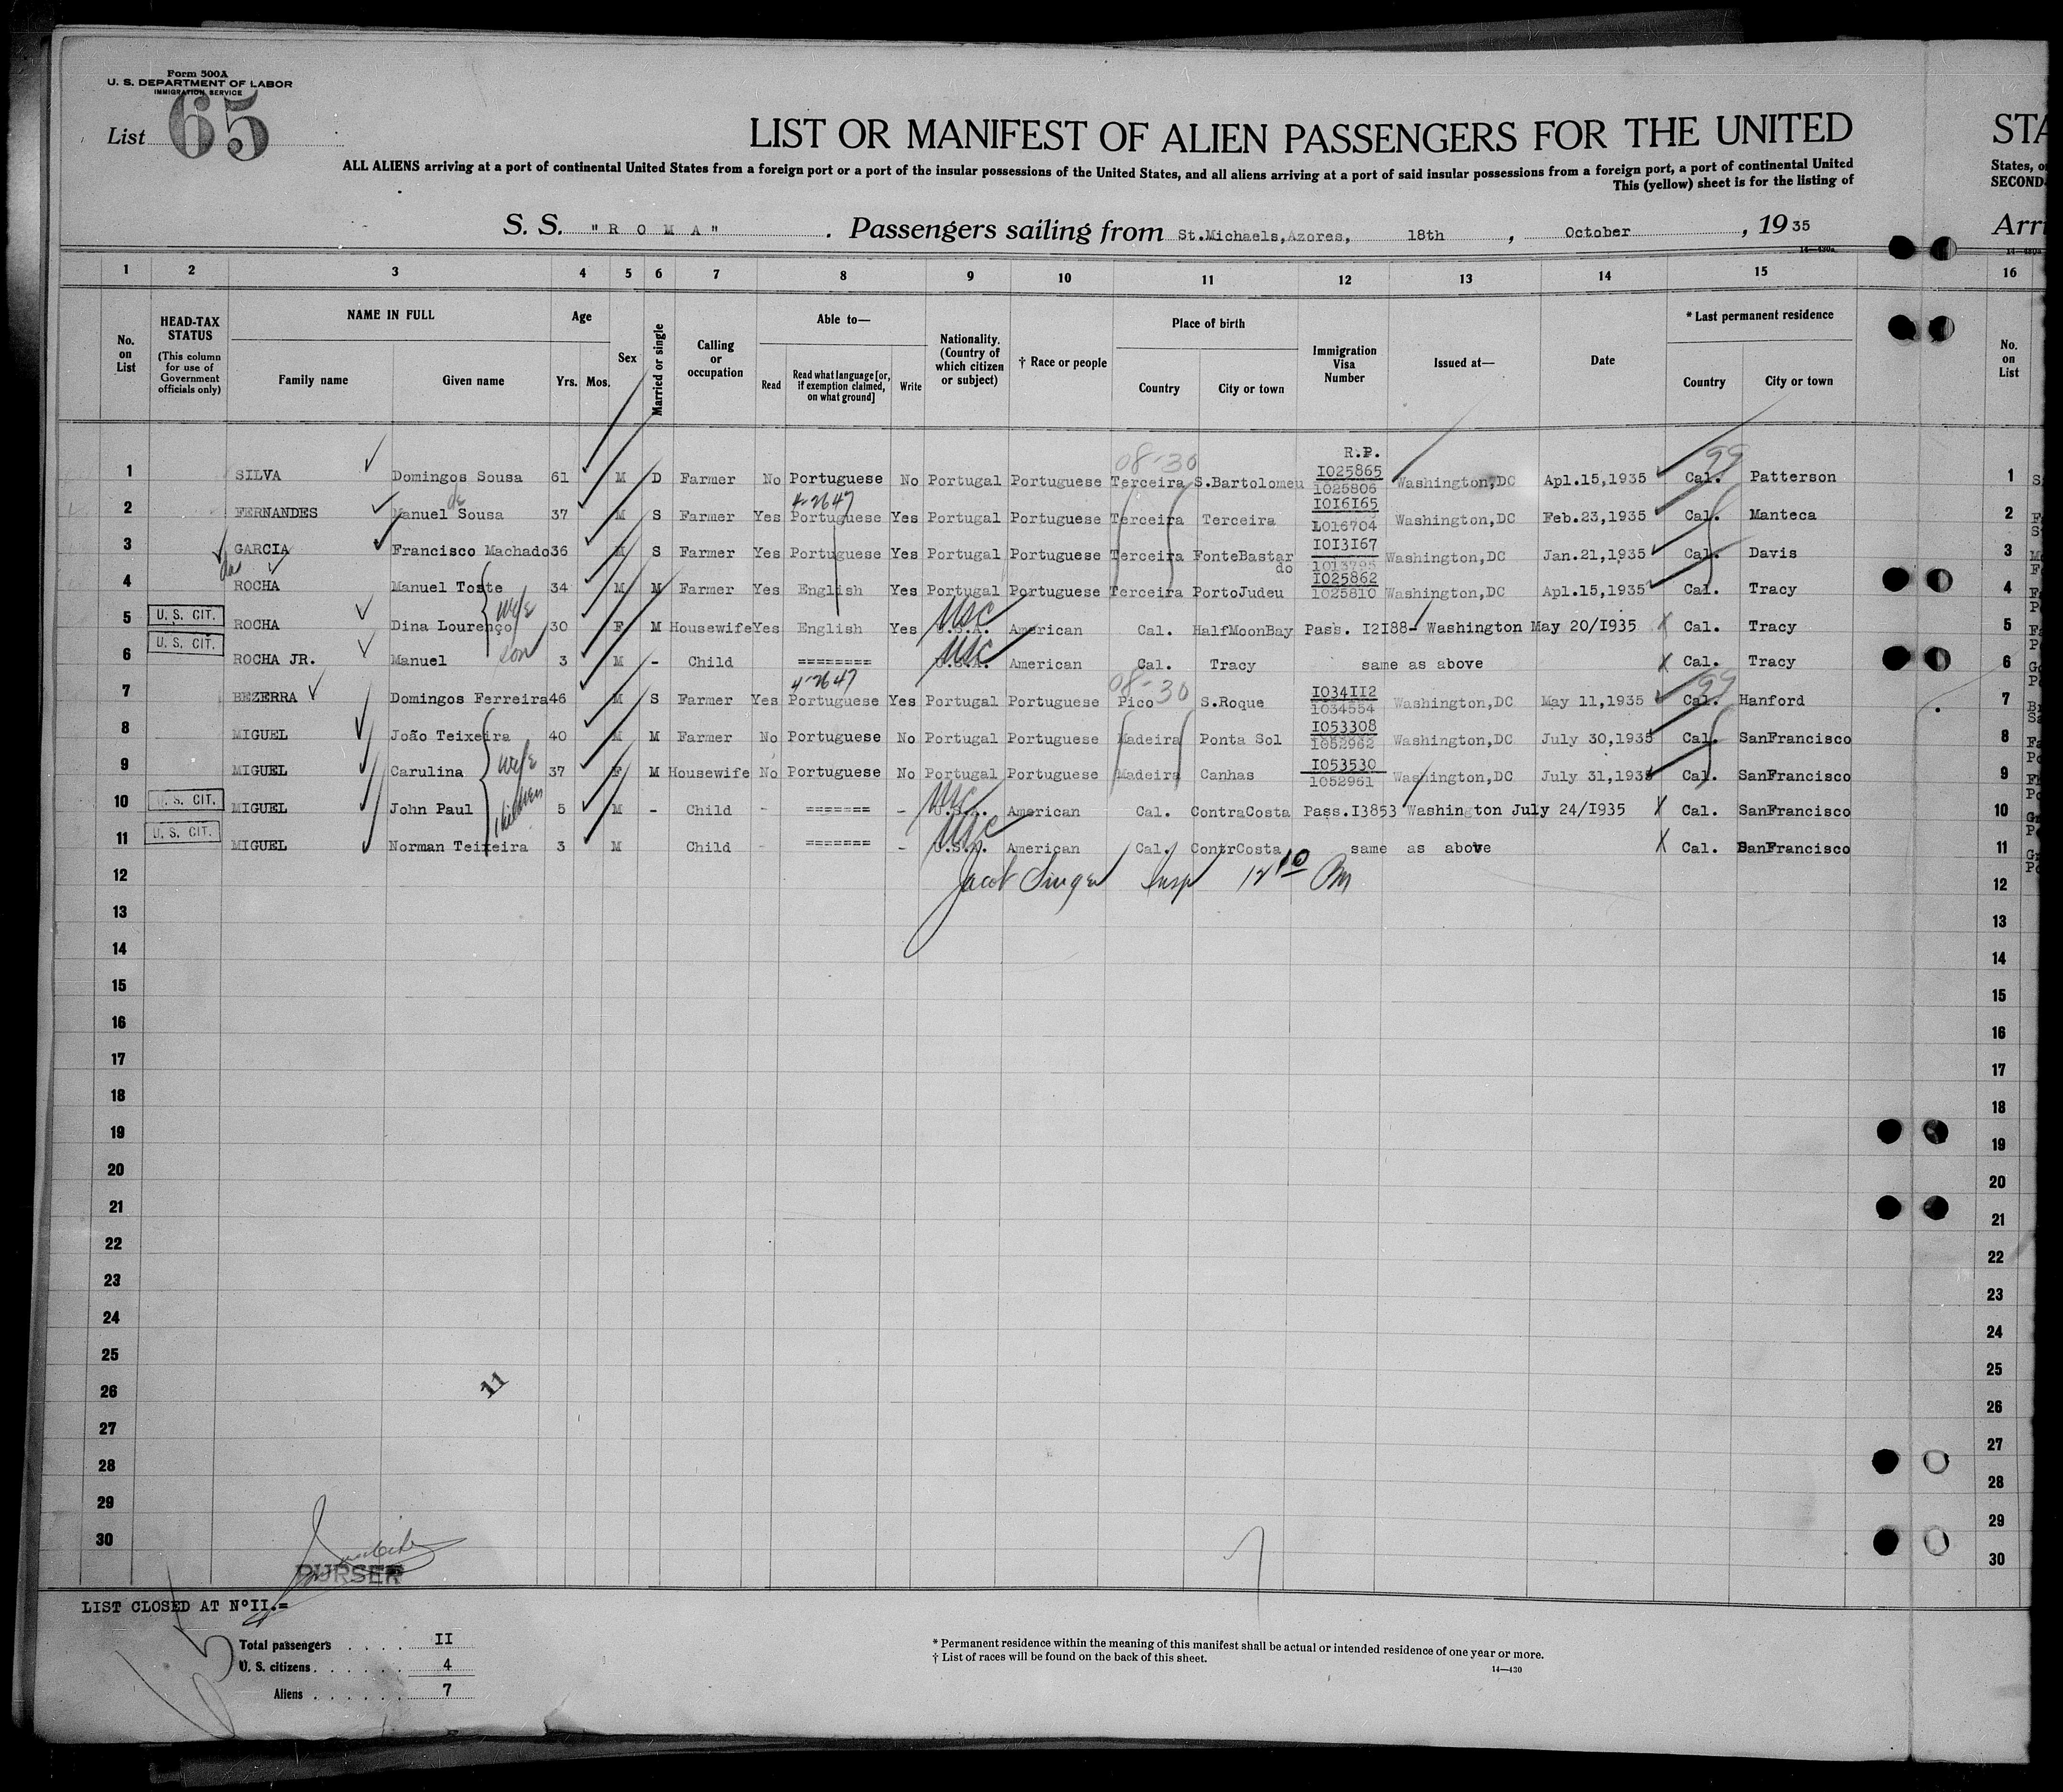 Form 500A
U. S. DEPARTMENT OF LABOR
IMMIGRATION SERVICE
List 65
LIST OR MANIFEST OF ALIEN PASSENGERS FOR THE UNITED
STA
ALL ALIENS arriving at a port of continental United States from a foreign port or a port of the insular possessions of the United States, and all aliens arriving at a port of said insular possessions from a foreign port, a port of continental United
States, o
This (yellow) sheet is for the listing of
SECOND-
S. S. "ROMA". Passengers sailing from St.Michaels,Azores, 18th, October, 1935
Arri
14—430a
1 2 3 4 5 6 7 8 9 10 11 12 13 14 15 16
No. on List
HEAD-TAX STATUS
(This column for use of Government officials only)
NAME IN FULL
Family name Given name
Age
Yrs. Mos.
Sex
Married or single
Calling or occupation
Able to—
Read Read what language [or, if exemption claimed, on what ground] Write
Nationality. (Country of which citizen or subject)
† Race or people
Place of birth
Country City or town
Immigration Visa Number
Issued at—
Date
* Last permanent residence
Country City or town
No. on List
08-30 R.P. 99
1 SILVA Domingos Sousa 61 M D Farmer No Portuguese No Portugal Portuguese Terceira S.Bartolomeu I025865 1025806 Washington,DC Apl.15,1935 Cal. Patterson 1
de 4-2647
2 FERNANDES Manuel Sousa 37 M S Farmer Yes Portuguese Yes Portugal Portuguese Terceira Terceira I016165 1016704 Washington,DC Feb.23,1935 Cal. Manteca 2
3 GARCIA Francisco Machado 36 M S Farmer Yes Portuguese Yes Portugal Portuguese Terceira FonteBastardo I013167 Washington,DC Jan.21,1935 Cal. Davis 3
4 ROCHA Manuel Toste 34 M M Farmer Yes English Yes Portugal Portuguese Terceira PortoJudeu I025862 1025810 Washington,DC Apl.15,1935 Cal. Tracy 4
5 U. S. CIT. ROCHA Dina Lourenço wife 30 F M Housewife Yes English Yes USC U.S.A. American Cal. HalfMoonBay Pass. I2I88- Washington May 20/I935 X Cal. Tracy 5
6 U. S. CIT. ROCHA JR. Manuel son 3 M - Child ======== USC U.S.A. American Cal. Tracy same as above X Cal. Tracy 6
4-2647 08-30 99
7 BEZERRA Domingos Ferreira 46 M S Farmer Yes Portuguese Yes Portugal Portuguese Pico S.Roque I034II2 1034554 Washington,DC May 11,1935 Cal. Hanford 7
8 MIGUEL João Teixeira 40 M M Farmer No Portuguese No Portugal Portuguese Madeira Ponta Sol I053308 1052962 Washington,DC July 30,1935 Cal. SanFrancisco 8
9 MIGUEL Carulina wife 37 F M Housewife No Portuguese No Portugal Portuguese Madeira Canhas I053530 1052961 Washington,DC July 31,1935 Cal. SanFrancisco 9
10 U. S. CIT. MIGUEL John Paul children 5 M - Child - ======= - USC U.S.A. American Cal. ContraCosta Pass.I3853 Washington July 24/I935 X Cal. SanFrancisco 10
11 U. S. CIT. MIGUEL Norman Teixeira 3 M Child - ======= - USC U.S.A. American Cal. ContrCosta same as above X Cal. SanFrancisco 11
12 Jacob Singer Insp 12 10 Pm 12
13 13
14 14
15 15
16 16
17 17
18 18
19 19
20 20
21 21
22 22
23 23
24 24
25 25
26 11 26
27 27
28 28
29 29
30 30
PURSER
LIST CLOSED AT NºII.=
Total passengers . . . . II
U. S. citizens . . . . . . 4
Aliens . . . . . . 7
* Permanent residence within the meaning of this manifest shall be actual or intended residence of one year or more.
† List of races will be found on the back of this sheet.
14—430